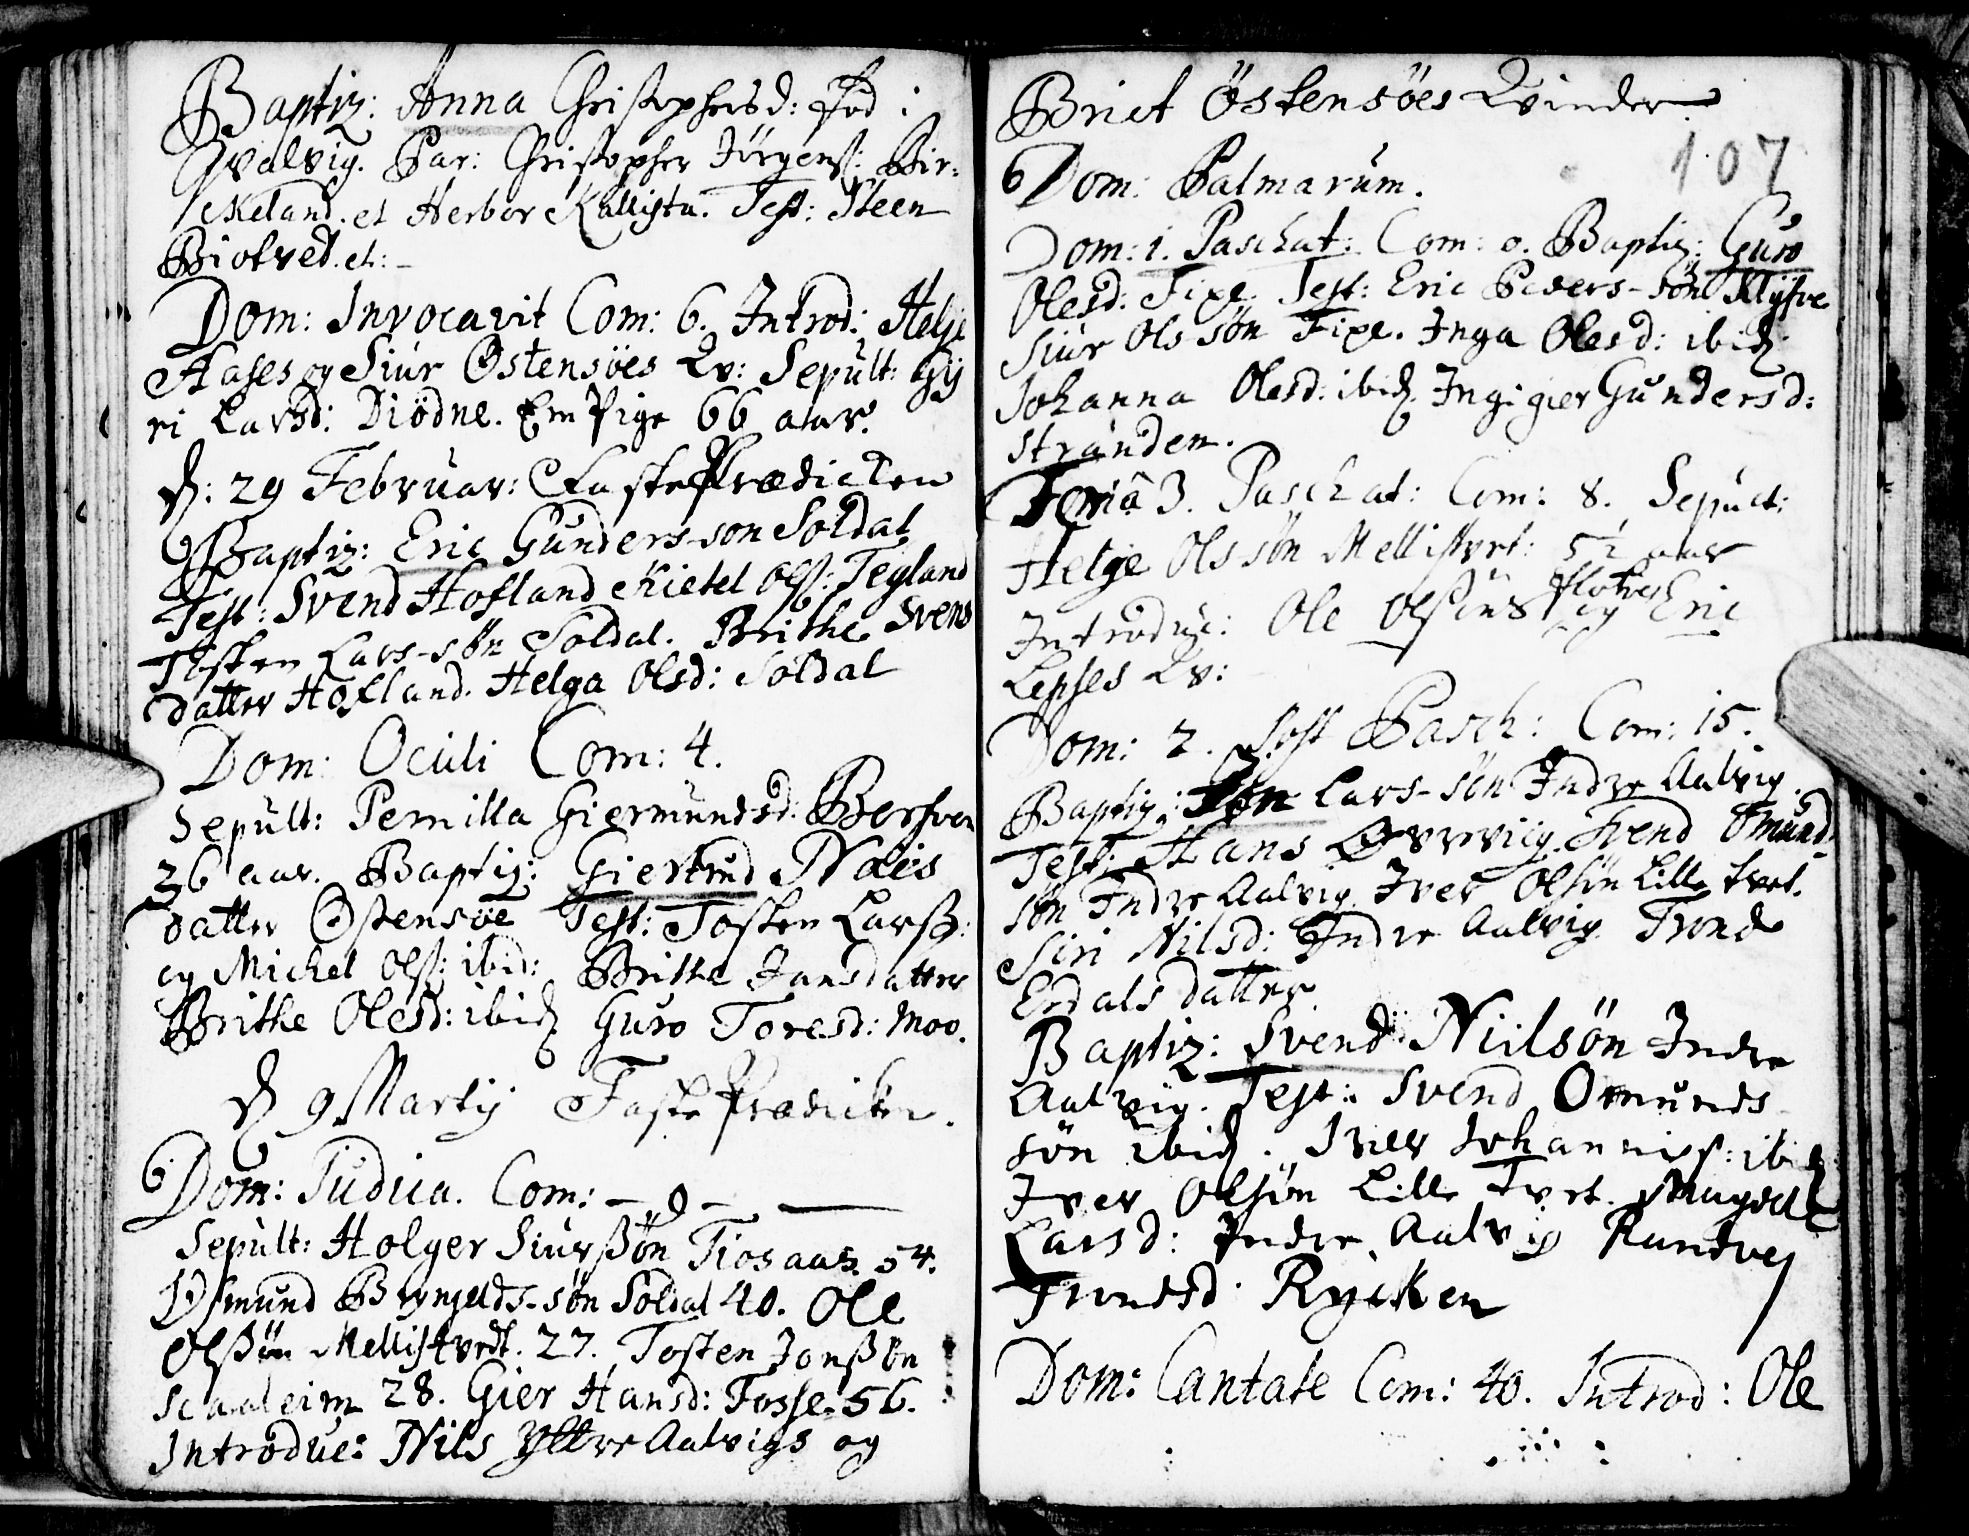 Baptiz: Anna Christophersd: fød i
Qvalvig. Par: Christopher Jörgenß: Bir-
keland. et Herbor Kallista. Test: Steen
Biotved. et: -
Dom: Invocavit Com: 6. Introd: Helje
Aases og Siur Östensöes Qv: Sepult: Gy
ri Larsd: Diödne. Em Pige 66 aar.
d: 29 Februar: Faste Prædicken
Baptiz: Eric Gunders-son Soldal
Test: Svend Hofland Kietel Olß: Tegland
Tosten Lars-sön Soldal. Brithe Svens
datter Hofland. Helga Olsd: Soldal
Dom: Oculi Com: 4.
Sepult: Pernilla Giermundsd:
36 aar. Baptiz: Giertrud Nels
datter Östensöe Test: Tosten Larsß:
og Michel Olß: ibid: Brithe Jansdatter
Brithe Olesd: ibid Guro Toresd: Moo.
d 9 Martij Faste Prædicken.
6 Dom: Judica. Com: - 0 -
Sepult: Holger Siurßön Tiosaas. 54.
Asmund Brynjelds-sön Soldal 40. Ole
Olßön Mellistvedt. 27. Tosten Jonßön
Scaaleim 28. Gier Hansd: Fosse. 56.
Introduc: Nils Yttre Aalvigs og
Brict Östensöes Qvinder
107
6 Dom: Palmarum.
Dom: 1. Paschat: Com: 0. Baptiz: Guro
Olesd: Fixe. Test: Eric Peders-sön Klyfve
Siur Ols sön Fixe. Inga Olesd: ibid
Johanna Olesd: ibid. Ingigier Gundersd:
Stranden.
Feriâ 3. Paschat: Com: 8. Sepult:
Helge Ols sön Mellistvet: 5½ aar
Introduc: Ole Olßöns Flotves og Eric
Lepses Qv:
Dom: 2. Post Pasch: Com: 15.
Baptiz: Lars-sön Indre Aalvig.
Test: Hans Svend Omund-
sön Indre Aalvig. Iver Olsön Lille tvet.
Siri Nilsd: Indre Aalvig. Trond
Erdals datter
Baptiz: Svend Nilsön Indre
Aalvig. Test: Svend Omunds-
sön ibid. Iver Johannisß: ibid
Iver Olsön Lille Tvet. Magdel
Larsd: Indre Aalvig Randvej
Trondsd: Rycken
Dom: Cantate Com: 40. Introd: Ole